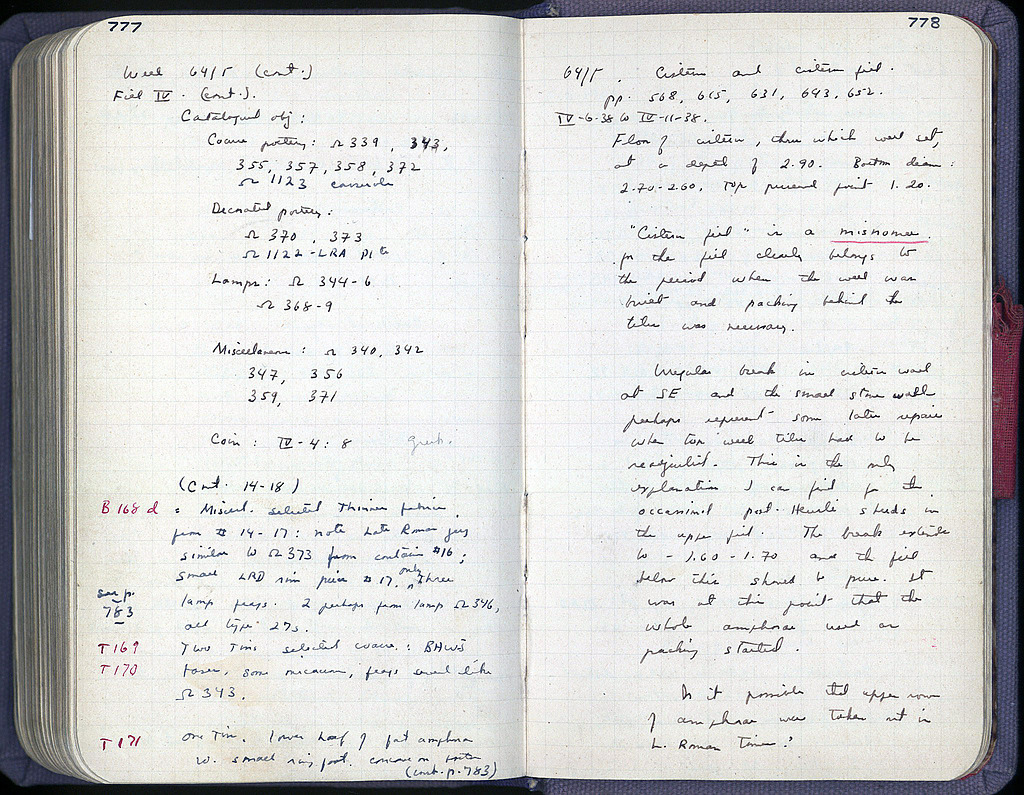 777
Well 64/5 (cont.)
Fill IV. (cont.).
Catalogued obj:
Coarse pottery: Ω 339, 343,
355, 357, 358, 372
Ω 1123 casserole
Decorated pottery:
Ω 370, 373
Ω 1122 - LRA Plte
Lamps: Ω 344-6
Ω 368-9
Miscellaneous: Ω 340, 342
347, 356
359, 371
Coin: IV-4: 8 greek.
(Cont. 14-18)
B 168 d: Miscel. selected Thinner fabric
from # 14-17: note Late Roman frg
similar to Ω 373 from contain #16;
small LRD rim piece # 17. only three
see p. 783
lamp frags. 2 perhaps from lamp Ω 346,
all type 27s.
T 169 Two Tins selected coarse: BHWS
T 170 bases, some micaceous, frags small like
Ω 343.
T 171 One Tin. lower half of fat amphora
w. small ring foot.
(cont. p. 783)
778
64/5. Cistern and cistern fill.
pp. 568, 615, 631, 643, 652.
IV-6-38 to IV-11-38.
Floor of cistern, thru which well set,
at a depth of 2.90. Bottom diam:
2.70-2.60, Top preserved point 1.20.
"Cistern fill" is a misnomer
for the fill clearly belongs to
the period when the well was
built and packing behind the
tiles was necessary.
Irregular break in cistern wall
at SE and the small stone wall
perhaps represent some later repair
when top well tiles had to be
readjusted. This is the only
explanation I can find for the
occasional post-Herulian sherds in
the upper fill. The break extends
to -1.60 -1.70 and the fill
below this should be pure. It
was at this point that the
whole amphorae used as
packing started.
Is it possible that upper row
of amphorae was taken out in
L. Roman Times?